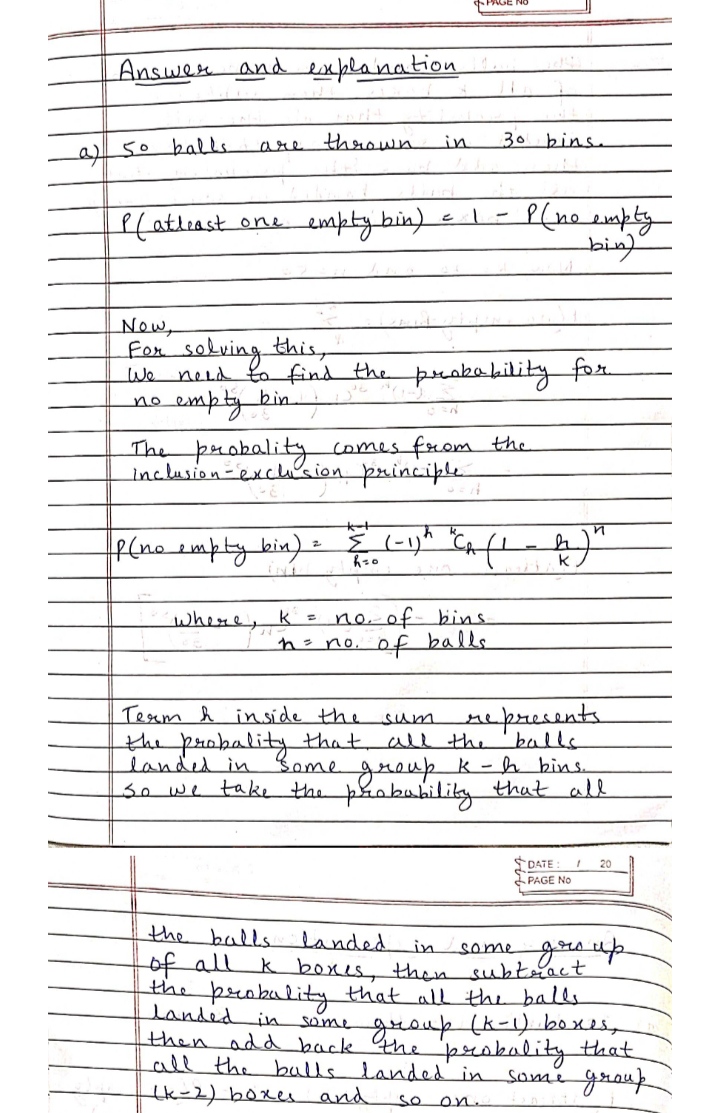 PAGE No
Answer and explanation
a) 50 balls are thrown in 30 bins.
P(atleast one empty bin) = 1 - P(no empty
bin)
Now,
For solving this,
We need to find the probability for
no empty bin.
The probality comes from the
inclusion-exclusion principle
P(no empty bin) = k-1 Σ h=0 (-1)^h ^kC_h (1 - h/k)^n
where, k = no. of bins
n = no. of balls
Term h inside the sum represents
the probality that all the balls
landed in some group k-h bins.
So we take the probability that all
DATE: / 20
PAGE No
the balls landed in some group
of all k boxes, then subtract
the probality that all the balls
landed in some group (k-1) boxes,
then add back the probality that
all the balls landed in some group
(k-2) boxes and so on.